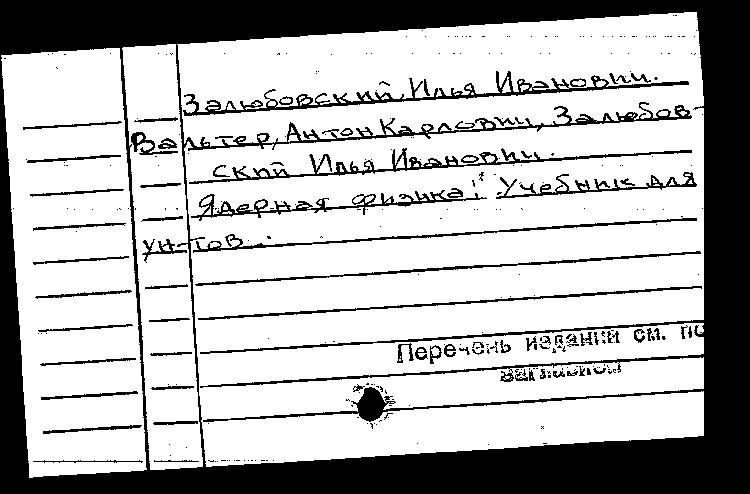 Залюбовский, Илья Иванович.
Вальтер, Антон Карлович, Залюбов-
ский Илья Иванович.
Ядерная физика: Учебник для
ун-тов.
Перечень изданий см. по
заглавной